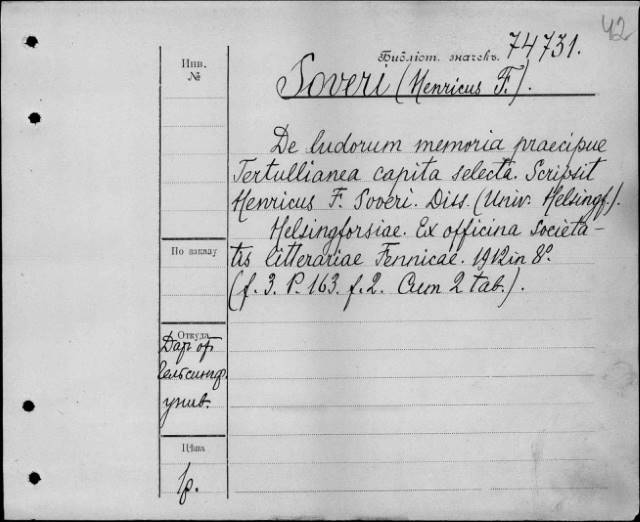 42
Библіот. значекъ. 74731.
Инв.
№
Soveri (Henricus F.).
De ludorum memoria praecipue
Tertullianea capita selecta. Scripsit
Henricus F. Soveri. Diss. (Univ. Helsingf.).
Helsingforsiae. Ex officina Societa-
tis litterariae Fennicae. 1912 in 8º.
(f. 3. P. 163. f. 2. Cum 2 tab.).
По заказу
Откуда
Даръ от
Гельсингф.
унив.
Цѣна
1р.